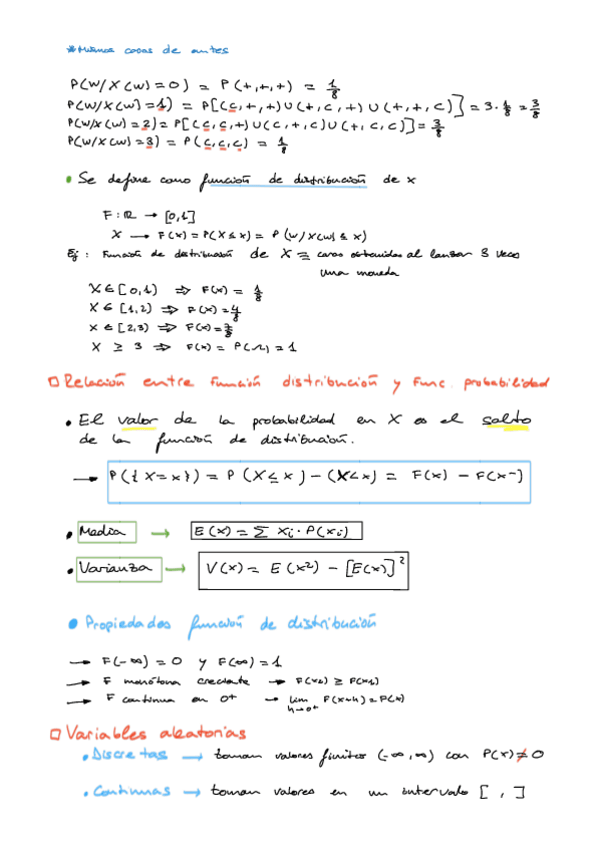 * Mismas cosas de antes
P(w/X(w)=0) = P(+,+,+) = 1/8
P(w/X(w)=1) = P[(c,+,+)∪(+,c,+)∪(+,+,c)] = 3·1/8 = 3/8
P(w/X(w)=2) = P[(c,c,+)∪(c,+,c)∪(+,c,c)] = 3/8
P(w/X(w)=3) = P(c,c,c) = 1/8
• Se define como función de distribución de x
F: ℝ → [0,1]
X → F(x) = P(X≤x) = P(w/X(w)≤x)
Ej: Función de distribución de X = caras obtenidas al lanzar 3 veces
una moneda
X∈[0,1) ⇒ F(x) = 1/8
X∈[1,2) ⇒ F(x) = 4/8
X∈[2,3) ⇒ F(x) = 7/8
X ≥ 3 ⇒ F(x) = P(Ω) = 1
Relación entre función distribución y func. probabilidad
• El valor de la probabilidad en X es el salto
de la función de distribución.
→ P({X=x}) = P(X≤x) - (X<x) = F(x) - F(x⁻)
• Media → E(x) = Σ xi · P(xi)
• Varianza → V(x) = E(x²) - [E(x)]²
• Propiedades función de distribución
→ F(-∞) = 0 y F(∞) = 1
→ F monótona creciente → F(x2) ≥ F(x1)
→ F continua en 0⁺ → lim h→0⁺ F(x+h) = F(x)
Variables aleatorias
• Discretas → toman valores finitos (-∞,∞) con P(x)≠0
• Continuas → toman valores en un intervalo [ , ]